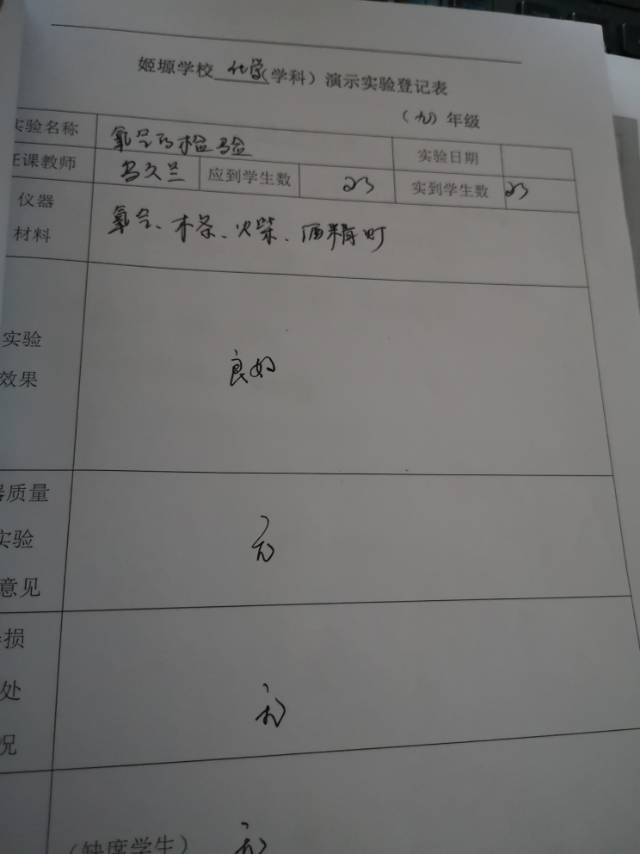 姬塬学校 化学(学科）演示实验登记表
（九）年级
实验名称 氧气的检验 实验日期
任课教师 马久兰 应到学生数 23 实到学生数 23
仪器 氧气、木条、火柴、酒精灯
材料
实验
效果 良好
器质量
实验 无
意见
损
处 无
况
(缺席学生) 无